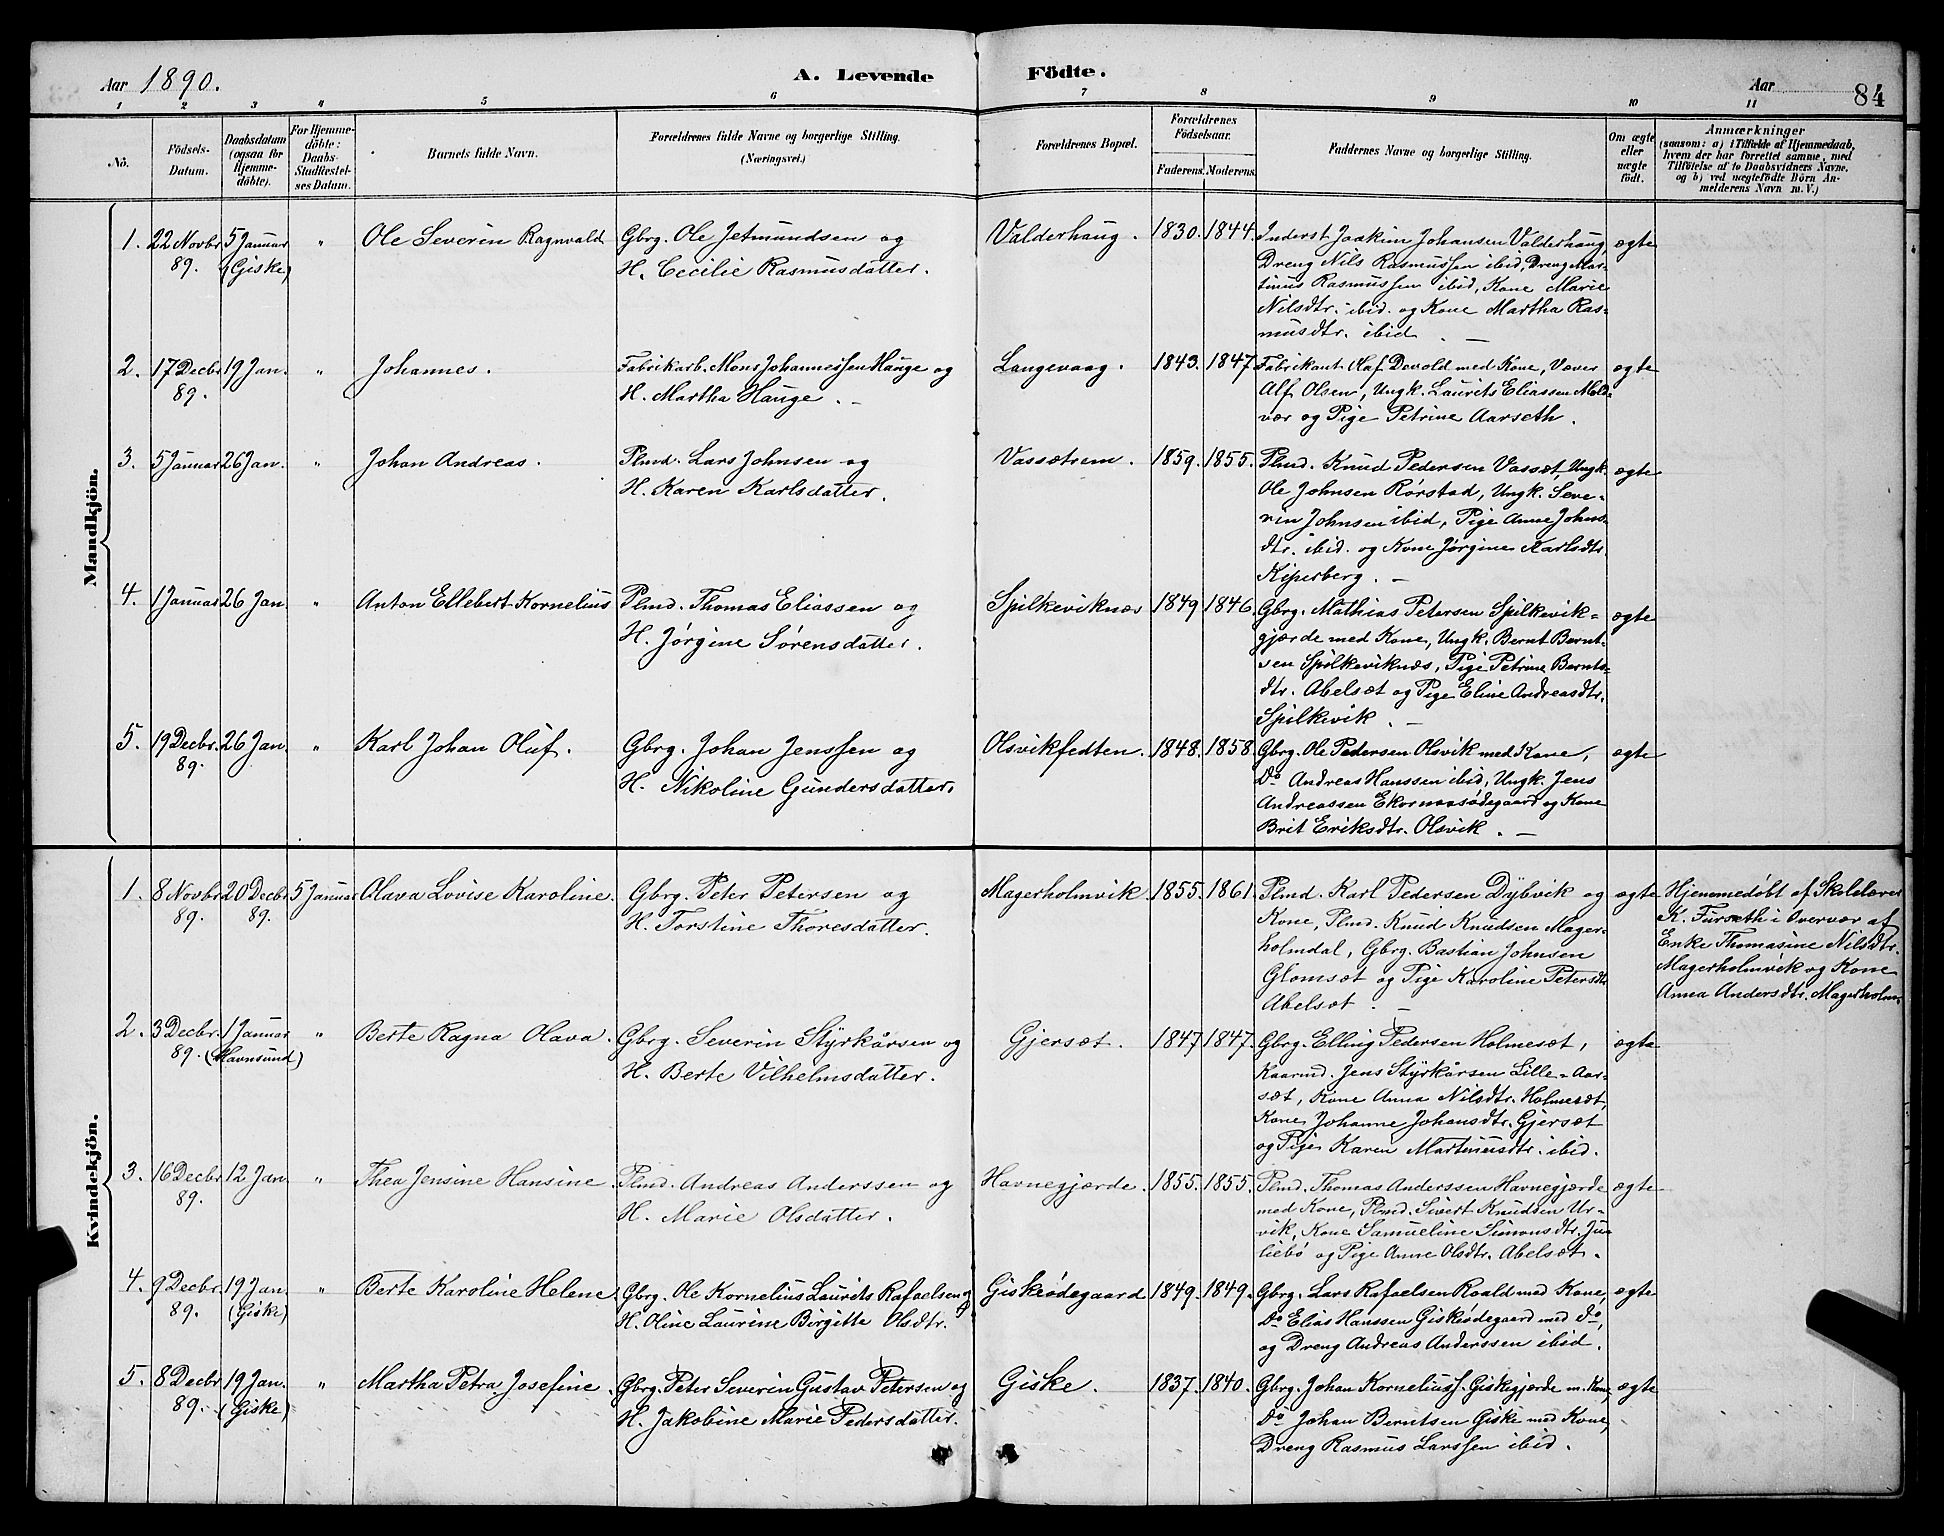 Aar 1890.
A. Levende Födte.
Aar
84
1 2 3 4 5 6 7 8 9 10 11
No.
Födsels-Datum.
Daabsdatum (ogsaa for Hjemmedöbte).
For Hjemmedöbte: Daabs-Stadfestelses Datum.
Barnets fulde Navn.
Forældrenes fulde Navne og borgerlige Stilling. (Næringsvei.)
Forældrenes Bopæl.
Forældrenes Födselsaar.
Faderens. Moderens.
Faddernes Navne og borgerlige Stilling.
Om ægte eller uægte födt.
Anmærkninger
(saasom: a) i Tilfælde af Hjemmedaab, hvem der har forrettet samme, med Tilföielse af to Daabsvidners Navne, og b) ved uægtefödte Börn Anmelderens Navn m. V.)
Mandkjön.
1. 22 Novbr 5 Januar " Ole Severin Ragnvald Gbrg. Ole Jetmundsen og Valderhaug. 1830. 1844. Inderst Joakim Johansen Valderhaug, ægte
89. (Giske) H. Cecilie Rasmusdatter. Dreng Nils Rasmussen ibid, Dreng Mar-
tinus Rasmussen ibid, Kone Marie
Nilsdtr. ibid. og Kone Martha Ras-
musdtr. ibid. —
2. 17 Decbr 19 Jan. " Johannes. Fabrikarb. Mons Johannessen Hauge og Langevaag. 1843. 1847. Fabrikant Olaf Devold med Kone, Væver ægte
89. H. Martha Hauge. — Alf Olsen, Ungk. Laurits Eliassen Mold-
vær og Pige Petrine Aarseth.
3. 5 Januar 26 Jan. " Johan Andreas. Plmd. Lars Johnsen og Vassætrem. 1859. 1855. Plmd. Knud Pedersen Vassæt, Ungk. ægte
H. Karen Karlsdatter. Ole Johnsen Rørstad, Ungk. Seve-
rin Johnsen ibid, Pige Anne Johns-
dtr. ibid. og Kone Jørgine Karlsdtr.
Kiperberg. —
4. 1 Januar 26 Jan. " Anton Ellebert Kornelius Plmd. Thomas Eliassen og Spilkeviknæs 1849. 1846. Gbrg. Mathias Petersen Spilkevik- ægte
H. Jørgine Sørensdatter. gjærde med Kone, Ungk. Bernt Bernt-
sen Spilkeviknæs, Pige Petrine Bernts-
dtr. Abelsæt og Pige Eline Andreasdtr.
Spilkevik. —
5. 19 Decbr. 26 Jan. " Karl Johan Oluf. Gbrg. Johan Jenssen og Olsvikfedten. 1848. 1858. Gbrg. Ole Pedersen Olsvik med Kone, ægte
89. H. Nikoline Gundersdatter. Do Andreas Hanssen ibid, Ungk. Jens
Andreassen Ekornaasødegaard og Kone
Brit Eriksdtr. Olsvik. —
Kvindekjön.
1. 8 Novbr 20 Decbr 5 Januar Olava Lovise Karoline. Gbrg. Peter Petersen og Magerholmvik. 1855. 1861. Plmd. Karl Pedersen Dybvik og ægte Hjemmedøbt af Skolelærer
89. 89. H. Torstine Thoresdatter. Kone, Plmd. Knud Knudsen Mager- K. Furseth i Overvær af
holmdal, Gbrg. Bastian Johnsen Enke Thomasine Nilsdtr.
Glomsæt og Pige Karoline Petersdtr. Magerholmvik og Kone
Abelsæt. — Anna Andersdtr. Magerholm.
2. 3 Decbr. 1 Januar " Berte Ragna Olava. Gbrg. Severin Styrkårsen og Gjersæt. 1847. 1847. Gbrg. Elling Pedersen Holmesæt, ægte
89. (Havnsund) H. Berte Vilhelmsdatter. Kaarmd. Jens Styrkårsen Lille-Aar-
sæt, Kone Anna Nilsdtr. Holmesæt,
Kone Johanne Johansdtr. Gjersæt
og Pige Karen Martinusdtr. ibid.
3. 16 Decbr. 12 Jan. " Thea Jensine Hansine. Plmd. Andreas Anderssen og Havnegjærde. 1855. 1855. Plmd. Thomas Anderssen Havnegjærde ægte
89. H. Marie Olsdatter. med Kone, Plmd. Sivert Knudsen Ur-
vik, Kone Samueline Simonsdtr. Ju-
liebø og Pige Anne Olsdtr. Abelsæt.
4. 9 Decbr. 19 Jan. " Berte Karoline Helene. Gbrg. Ole Kornelius Laurits Rafaelsen og Giskeødegaard 1849. 1849. Gbrg. Lars Rafaelsen Roald med Kone, ægte
89. (Giske) H. Oline Laurine Birgitte Olsdtr. Do Elias Hanssen Giskeødegaard med do,
og Dreng Andreas Anderssen ibid.
5. 8 Decbr 19 Jan. " Martha Petra Josefine. Gbrg. Peter Severin Gustav Petersen og Giske. 1837. 1840. Gbrg. Johan Korneliuss. Giskegjærde m. Kone, ægte
89. (Giske) H. Jakobine Marie Pedersdatter. Do Johan Berntsen Giske med Kone,
Dreng Rasmus Larssen ibid.